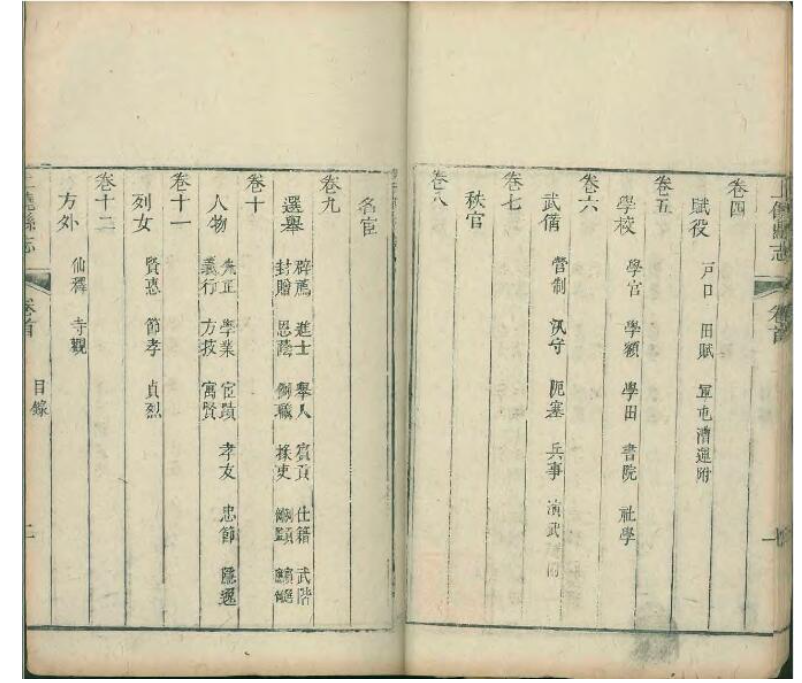 卷四
賦役 戸口 田賦 軍屯漕運附
卷五
學校 學官 學額 學田 書院 社學
卷六
武備 營制 汛守 阨塞 兵事 演武
卷七
秩官
卷八
名宦
卷九
選舉 辟薦 進士 舉人 貢貢 仕籍 武階
封贈 恩蔭 例職 掾吏
卷十
人物 先正 學業 宦蹟 孝友 忠節 隱逸
義行 方技 寓賢
卷十一
列女 賢惠 節孝 貞烈
卷十二
方外 仙釋 寺觀
上饒縣志 卷首 目錄 二